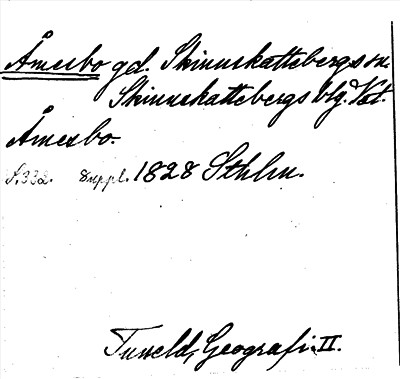 Åmesbo gd. Skinnskattebergs sn.
Skinnskattebergs blg. Vst.
Åmesbo.
S. 332. Suppl. 1828 Sthlm.
Tuneld, Geografi. II.